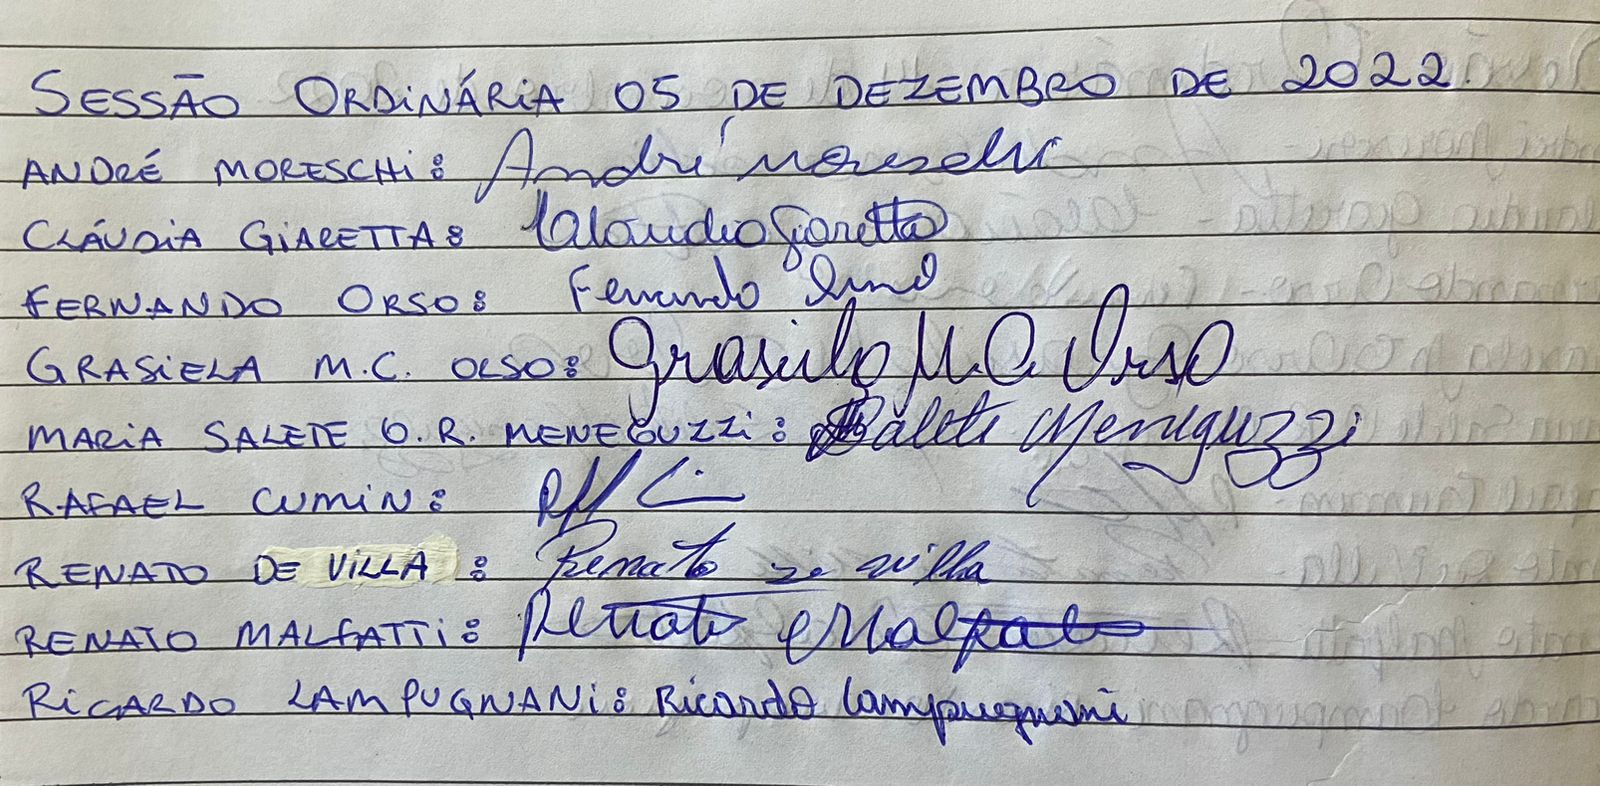 SESSÃO ORDINÁRIA 05 DE DEZEMBRO DE 2022.
ANDRÉ MORESCHI: André Moreschi
CLÁUDIA GIARETTA: Claudia Giaretta
FERNANDO ORSO: Fernando Orso
GRASIELA M.C. OLSO: Grasiela M. C. Orso
MARIA SALETE O. R. MENEGUZZI: Salete Meneguzzi
RAFAEL CUMIN:
RENATO DE VILLA: Renato De Villa
RENATO MALFATTI: Renato Malfatti
RICARDO LAMPUGNANI: Ricardo Lampugnani